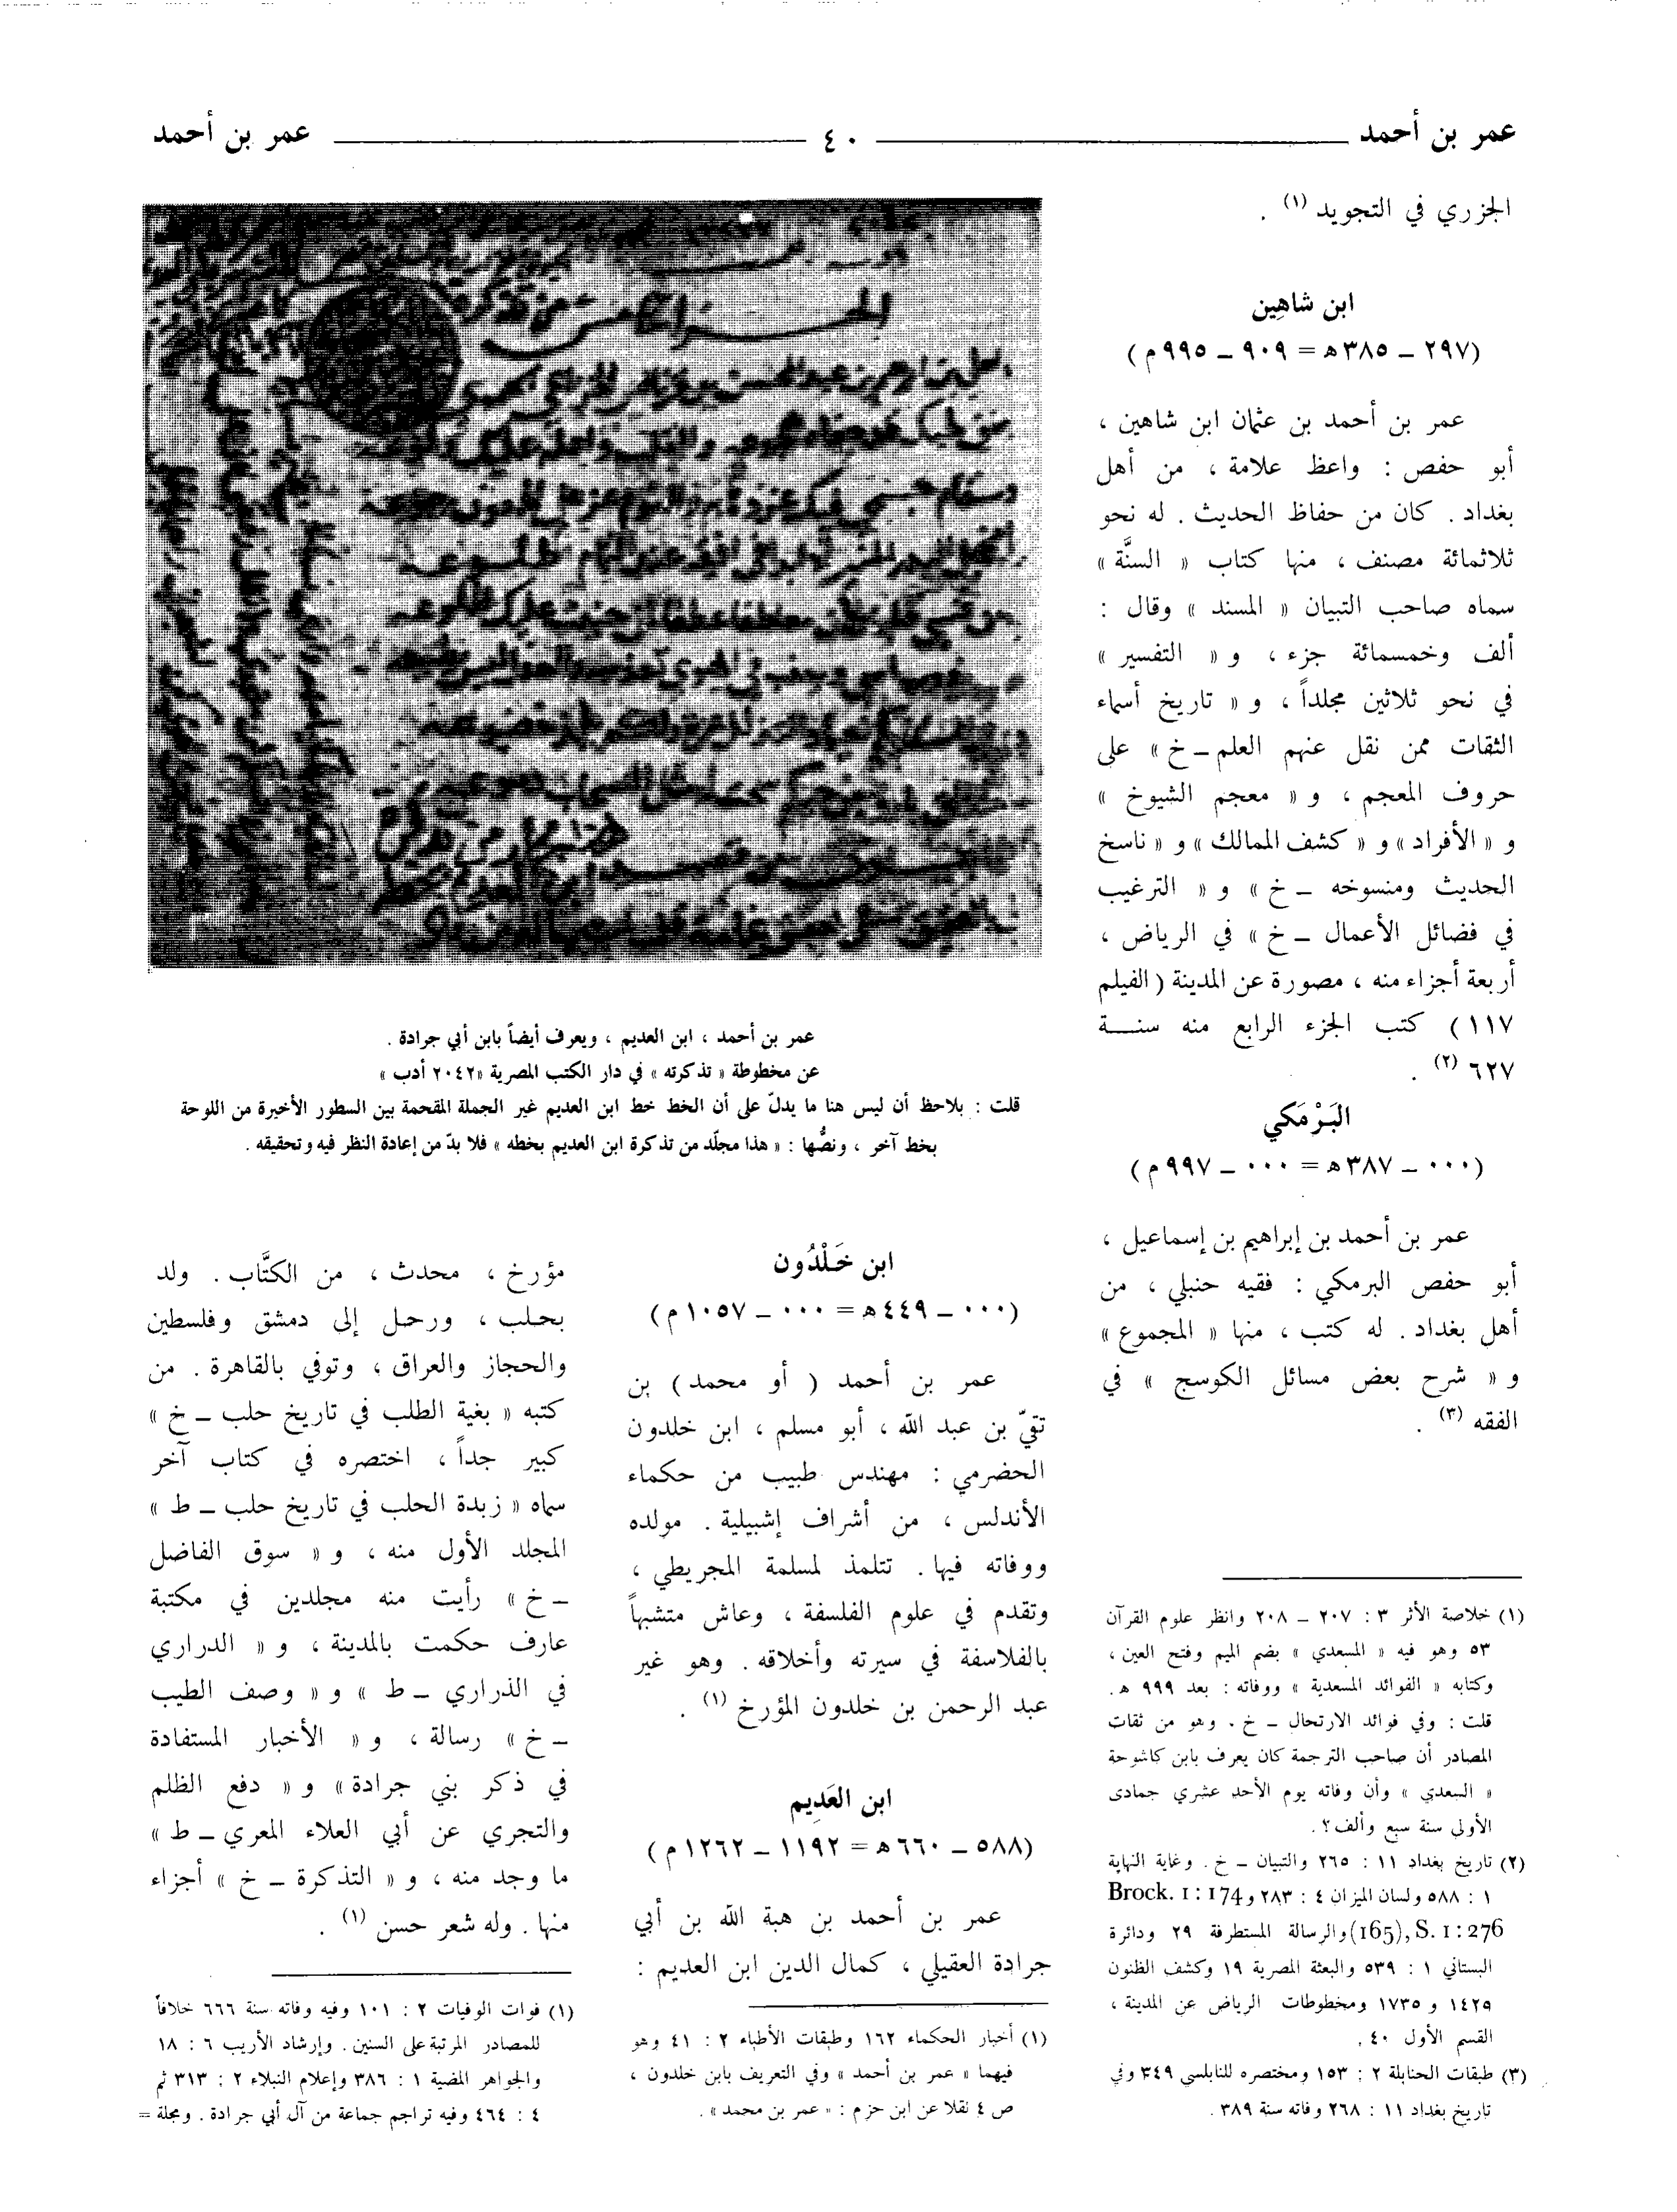 عمر بن أحمد ٤٠ عمر بن أحمد
الجزري في التجويد (١) .
ابن شاهِين
(٢٩٧ ــ ٣٨٥ هـ = ٩٠٩ ــ ٩٩٥ م)
عمر بن أحمد بن عثمان ابن شاهين ،
أبو حفص : واعظ علامة ، من أهل
بغداد . كان من حفاظ الحديث . له نحو
ثلاثمائة مصنف ، منها كتاب « السنَّة »
سماه صاحب التبيان « المسند » وقال :
ألف وخمسمائة جزء ، و « التفسير »
في نحو ثلاثين مجلداً ، و « تاريخ أسماء
الثقات ممن نقل عنهم العلم ــ خ » على
حروف المعجم ، و « معجم الشيوخ »
و « الأفراد » و « كشف الممالك » و « ناسخ
الحديث ومنسوخه ــ خ » و « الترغيب
في فضائل الأعمال ــ خ » في الرياض ،
أربعة أجزاء منه ، مصورة عن المدينة ( الفيلم
١١٧ ) كتب الجزء الرابع منه سنـــة
٦٢٧ (٢) .
البَرْمَكي
(٠٠٠ ــ ٣٨٧ هـ = ٠٠٠ ــ ٩٩٧ م)
عمر بن أحمد بن إبراهيم بن إسماعيل ،
أبو حفص البرمكي : فقيه حنبلي ، من
أهل بغداد . له كتب ، منها « المجموع »
و « شرح بعض مسائل الكوسج » في
الفقه (٣) .
(١) خلاصة الأثر ٣ : ٢٠٧ ــ ٢٠٨ وانظر علوم القرآن
٥٣ وهو فيه « المسعدي » بضم الميم وفتح العين ،
وكتابه « الفوائد المسعدية » ووفاته : بعد ٩٩٩ هـ .
قلت : وفي فوائد الارتحال ــ خ . وهو من ثقات
المصادر أن صاحب الترجمة كان يعرف بابن كاشوحة
« السعدي » وأن وفاته يوم الأحد عشري جمادى
الأولى سنة سبع وألف ؟ .
(٢) تاريخ بغداد ١١ : ٢٦٥ والتبيان ــ خ . وغاية النهاية
١ : ٥٨٨ ولسان الميزان ٤ : ٢٨٣ و Brock. 1 : 174
(165), S. 1 : 276 والرسالة المستطرفة ٢٩ ودائرة
البستاني ١ : ٥٣٩ والبعثة المصرية ١٩ وكشف الظنون
١٤٢٥ و ١٧٣٥ ومخطوطات الرياض عن المدينة ،
القسم الأول ٤٠ .
(٣) طبقات الحنابلة ٢ : ١٥٣ ومختصره للنابلسي ٣٤٩ وفي
تاريخ بغداد ١١ : ٢٦٨ وفاته سنة ٣٨٩ .
عمر بن أحمد ، ابن العديم ، ويعرف أيضاً بابن أبي جرادة .
عن مخطوطة « تذكرته » في دار الكتب المصرية «٢٠٤٢ أدب »
قلت : يلاحظ أن ليس هنا ما يدلّ على أن الخط خط ابن العديم غير الجملة المقحمة بين السطور الأخيرة من اللوحة
بخط آخر ، ونصُّها : « هذا مجلّد من تذكرة ابن العديم بخطه » فلا بدّ من إعادة النظر فيه وتحقيقه .
ابن خَلْدُون
(٠٠٠ ــ ٤٤٩ هـ = ٠٠٠ ــ ١٠٥٧ م)
عمر بن أحمد ( أو محمد ) بن
تقيّ بن عبد الله ، أبو مسلم ، ابن خلدون
الحضرمي : مهندس طبيب من حكماء
الأندلس ، من أشراف إشبيلية . مولده
ووفاته فيها . تتلمذ لمسلمة المجريطي ،
وتقدم في علوم الفلسفة ، وعاش متشبهاً
بالفلاسفة في سيرته وأخلاقه . وهو غير
عبد الرحمن بن خلدون المؤرخ (١) .
ابن العَدِيم
(٥٨٨ ــ ٦٦٠ هـ = ١١٩٢ ــ ١٢٦٢ م)
عمر بن أحمد بن هبة الله بن أبي
جرادة العقيلي ، كمال الدين ابن العديم :
(١) أخبار الحكماء ١٦٢ وطبقات الأطباء ٢ : ٤١ وهو
فيهما « عمر بن أحمد » وفي التعريف بابن خلدون ،
ص ٤ نقلا عن ابن حزم : « عمر بن محمد » .
مؤرخ ، محدث ، من الكتَّاب . ولد
بحلب ، ورحل إلى دمشق وفلسطين
والحجاز والعراق ، وتوفي بالقاهرة . من
كتبه « بغية الطلب في تاريخ حلب ــ خ »
كبير جداً ، اختصره في كتاب آخر
سماه « زبدة الحلب في تاريخ حلب ــ ط »
المجلد الأول منه ، و « سوق الفاضل
ــ خ » رأيت منه مجلدين في مكتبة
عارف حكمت بالمدينة ، و « الدراري
في الذراري ــ ط » و « وصف الطيب
ــ خ » رسالة ، و « الأخبار المستفادة
في ذكر بني جرادة » و « دفع الظلم
والتجري عن أبي العلاء المعري ــ ط »
ما وجد منه ، و « التذكرة ــ خ » أجزاء
منها . وله شعر حسن (١) .
(١) فوات الوفيات ٢ : ١٠١ وفيه وفاته سنة ٦٦٦ خلافاً
للمصادر المرتبة على السنين . وإرشاد الأريب ٦ : ١٨
والجواهر المضية ١ : ٣٨٦ وإعلام النبلاء ٢ : ٣١٣ ثم
٤ : ٤٦٤ وفيه تراجم جماعة من آل أبي جرادة . ومجلة =